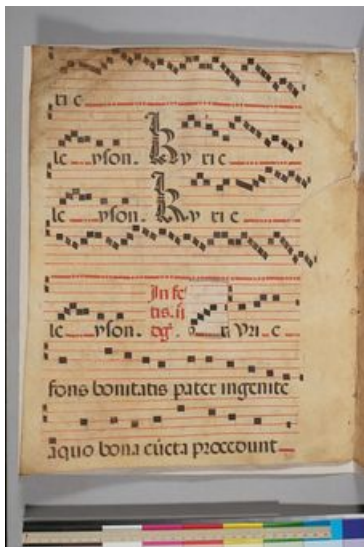 ri e
le yson. Ky ri e
le yson. Ky ri e
le yson. In fe
tis. ij
Yri e
fons bonitatis pater ingenite
aquo bona cūcta procedunt